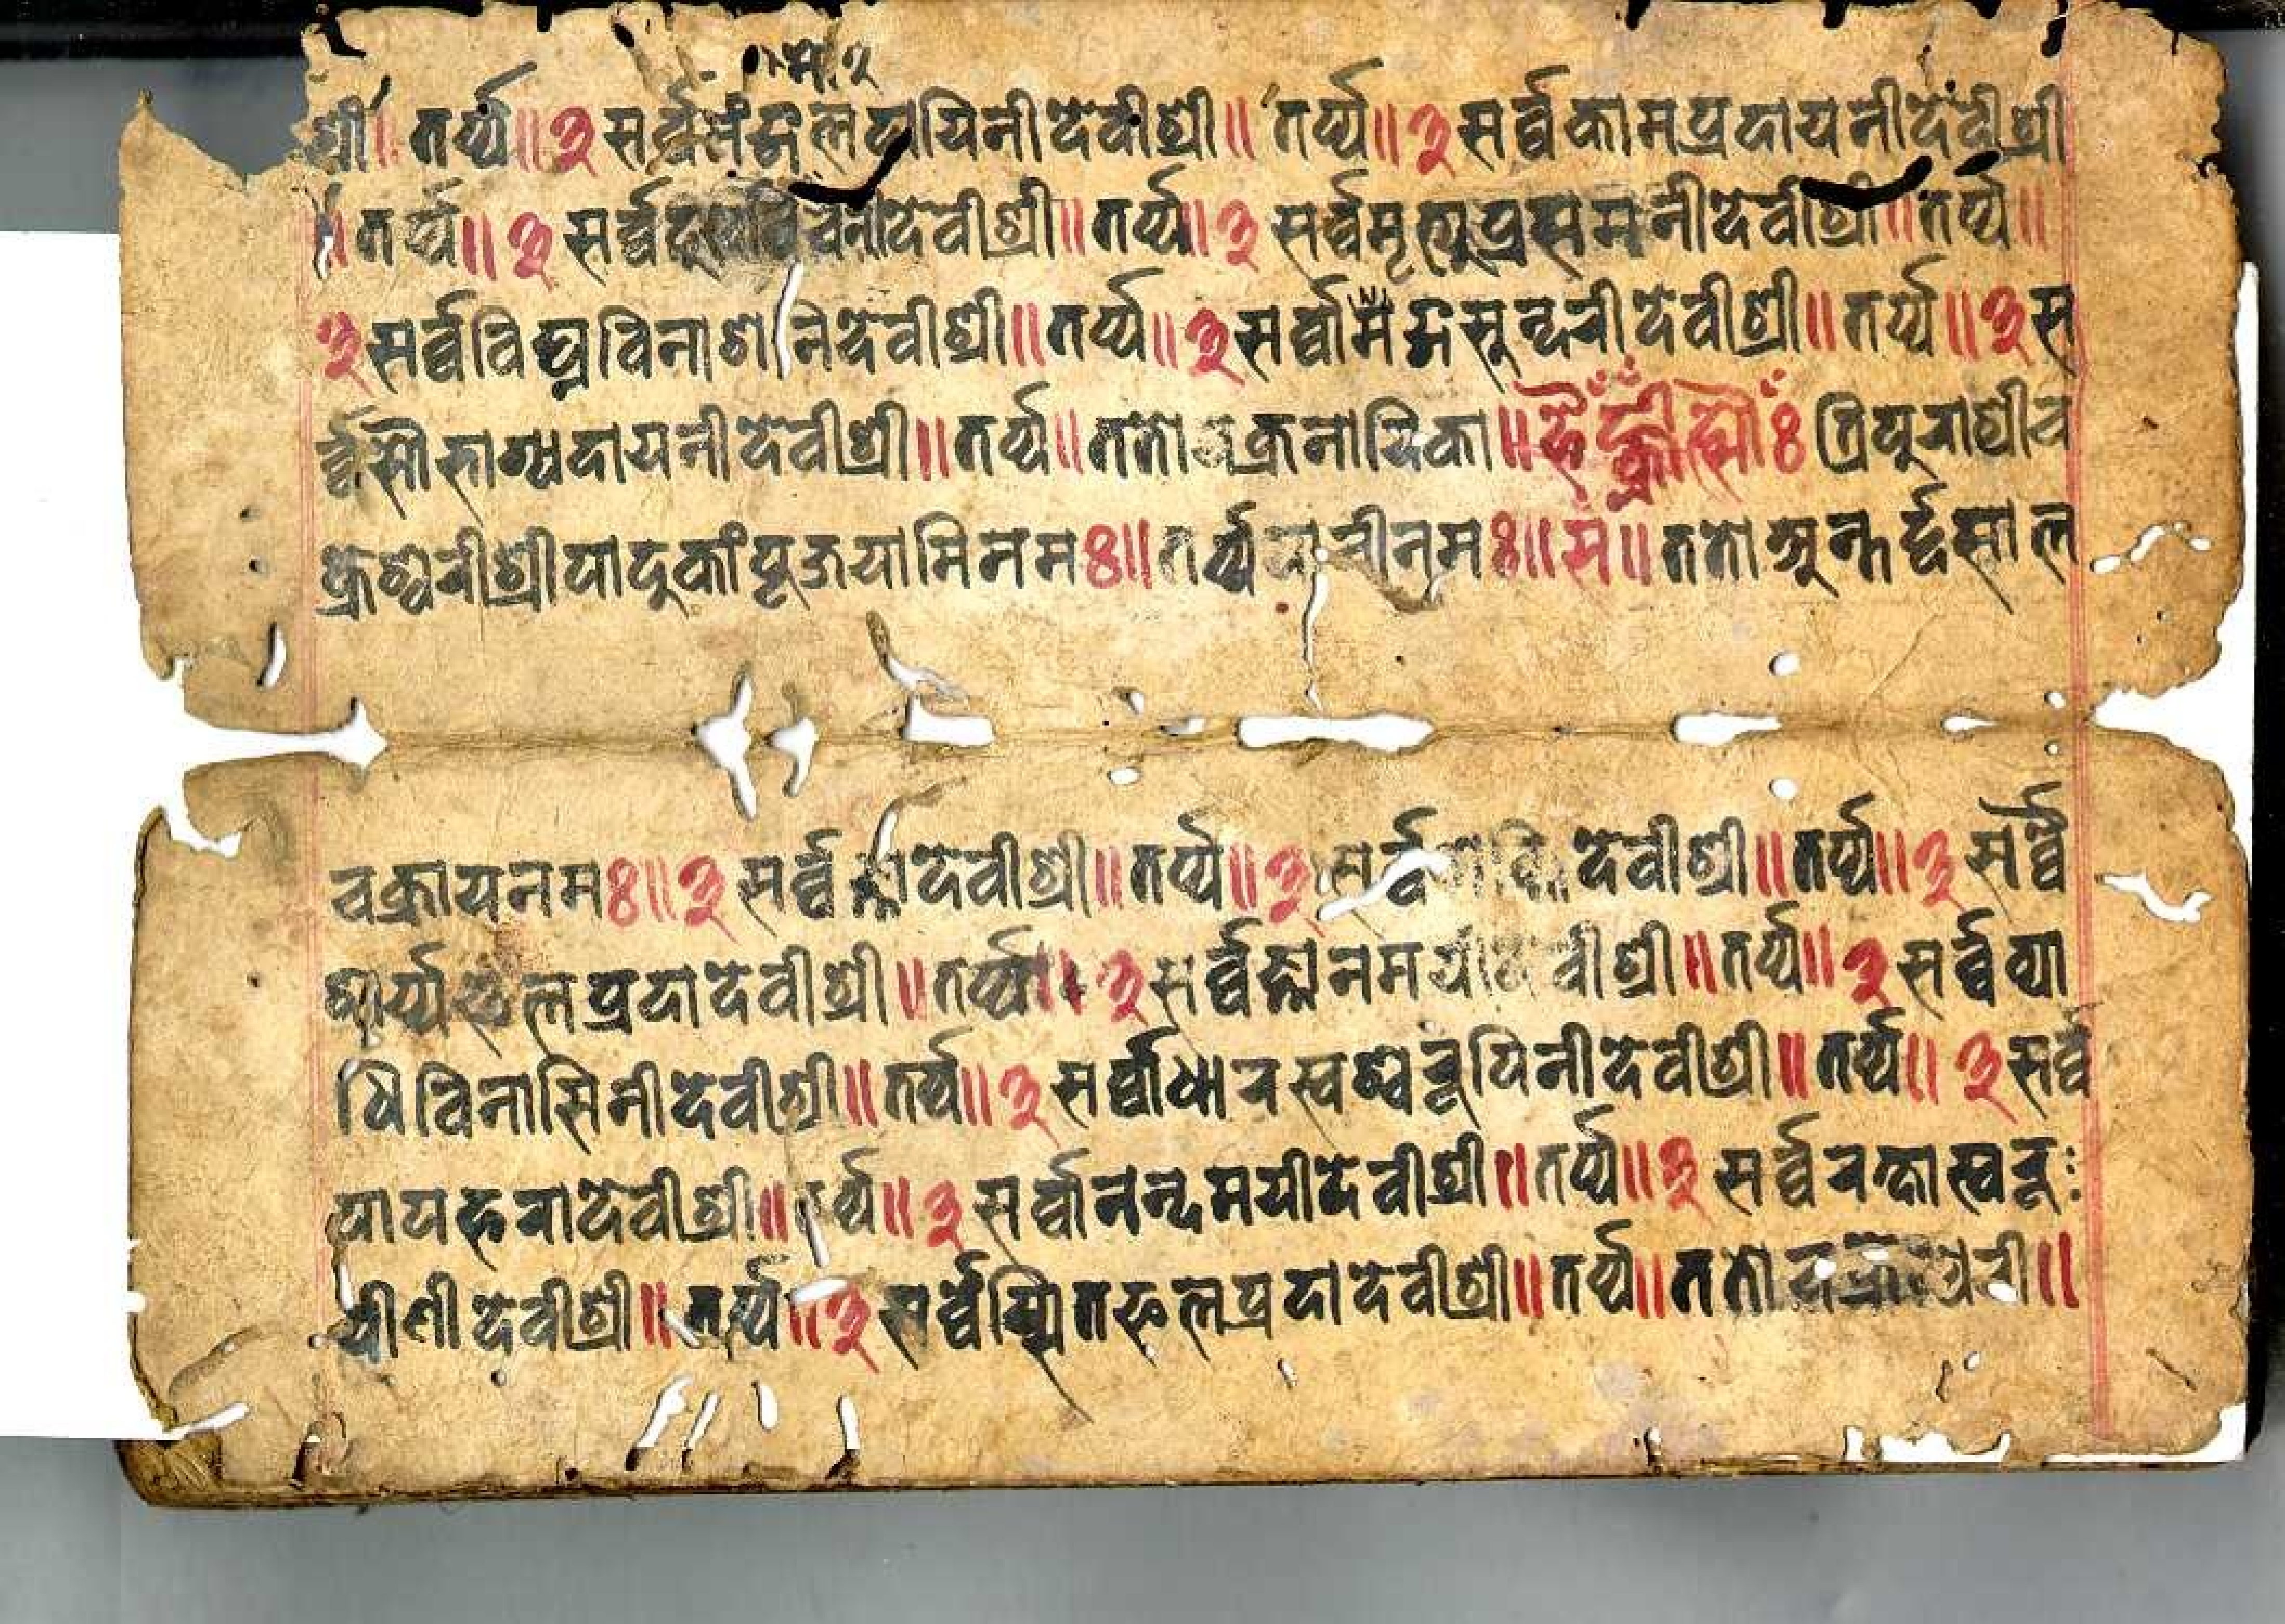 म, २
श्री॥ तर्प्य॥ ३ सर्व्वमंङ्गलदायिनीदेवीश्री॥ तर्प्य॥ ३ सर्व्वकामप्रदायनीदेवीश्री
॥ तर्प्य॥ ३ सर्व्व देवीश्री॥ तर्प्य॥ ३ सर्व्वमृत्युप्रसमनीदेवीश्री॥ तर्प्य॥
३ सर्व्वविघ्नविनाशनिदेवीश्री॥ तर्प्य॥ ३ सर्व्वामङ्गसुन्दरीदेवीश्री॥ तर्प्य॥ ३ स
र्व्वसौभाग्यदायनीदेवीश्री॥ तर्प्य॥ ततो चक्रनायिका॥ त्रिपुराश्रीच
क्रश्वरीश्रीपादुकांपूजयामिनमः॥ तर्प्य नमः॥ सं॥ ततोअन्तर्द्दसाल
चक्रायनमः॥ ३ सर्व्वज्ञादेवीश्री॥ तर्प्य॥ ३ सर्व्व देवीश्री॥ तर्प्य॥ ३ सर्व्वै
श्वर्य्यफलप्रदादेवीश्री॥ तर्प्य॥ ३ सर्व्वज्ञानमयीदेवीश्री॥ तर्प्य॥ ३ सर्व्वव्या
धिविनासिनीदेवीश्री॥ तर्प्य॥ ३ सर्व्वाधारस्वश्वरूपिनीदेवीश्री॥ तर्प्य॥ ३ सर्व्व
पापहरादेवीश्री॥ तर्प्य॥ ३ सर्व्वानन्दमयीदेवीश्री॥ तर्प्य॥ ३ सर्व्वरक्षास्वरू
पीणीदेवीश्री॥ तर्प्य॥ ३ सर्व्वेप्सितफलप्रदादेवीश्री॥ तर्प्य॥ ततो